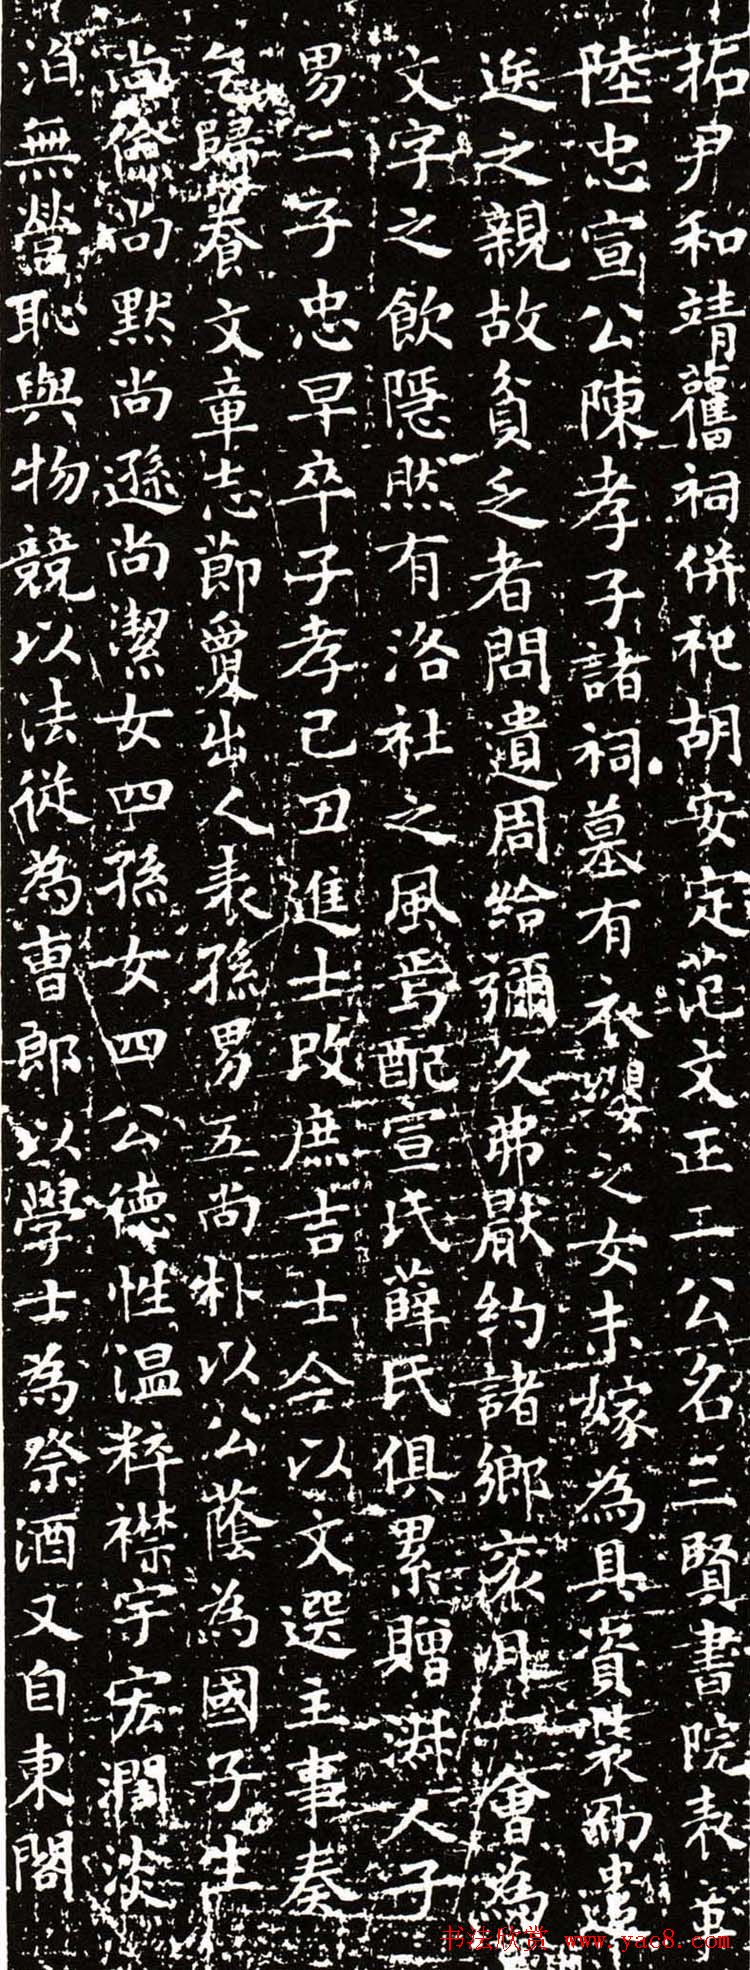 拓尹和靖舊祠併祀胡安定范文正二公名三賢書院表章
陸忠宣公陳孝子諸祠墓有衣纓之女未嫁為具資裝而遣
送之親故貧乏者問遺周給彌久弗厭約諸鄉衮月一會為
文字之飲隱然有洛社之風焉配宣氏薛氏俱累贈淑人子
男二子忠早卒子孝己丑進士改庶吉士今以文選主事奏
乞歸養文章志節夐出人表孫男五尚朴以公蔭為國子生
尚儉尚默尚遜尚潔女四孫女四公德性温粹襟宇宏潤淡
泊無營恥與物競以法從為曹郎以學士為祭酒又自東閣
书法欣赏 www.yac8.com